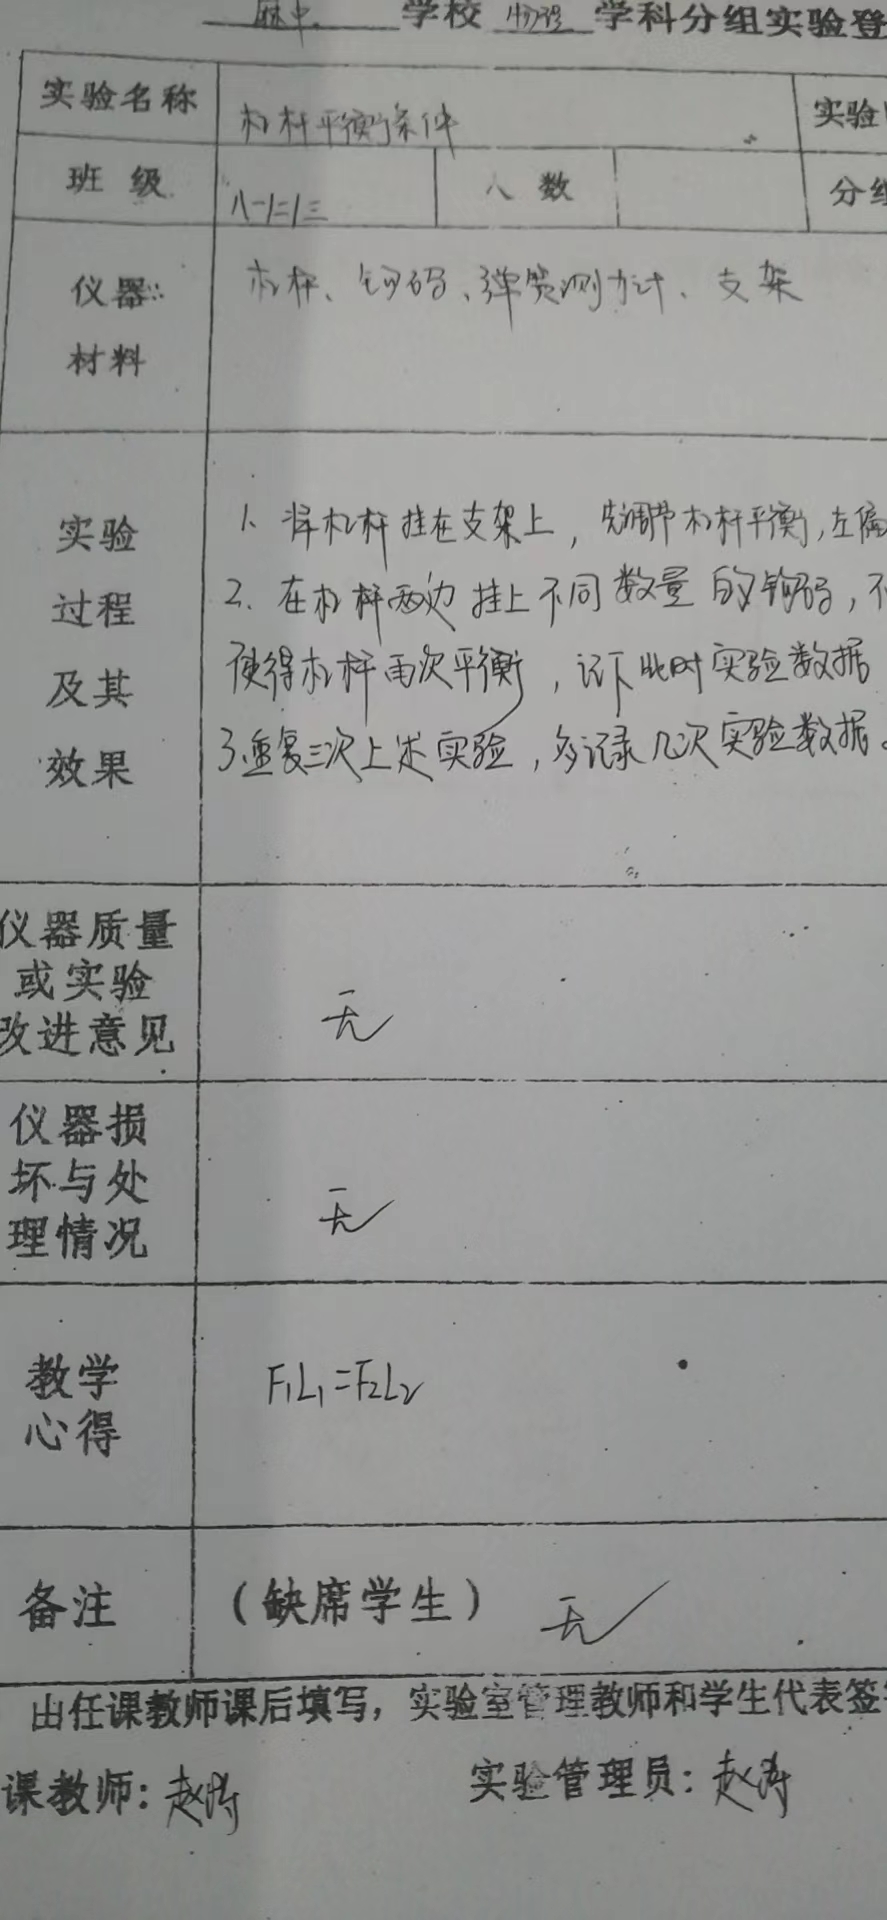 学校 物理 学科分组实验登
实验名称 杠杆平衡条件 实验
班级 人数 分组
仪器 杠杆、钩码、弹簧测力计、支架
材料
实验 1、将杠杆挂在支架上，先调节杠杆平衡，左偏
过程 2、在杠杆两边挂上不同数量的钩码，不
及其 使得杠杆再次平衡，记下此时实验数据
效果 3、重复三次上述实验，多记录几次实验数据。
仪器质量
或实验
改进意见 无
仪器损
坏与处
理情况 无
教学 F₁L₁=F₂L₂
心得
备注 （缺席学生） 无
由任课教师课后填写，实验室管理教师和学生代表签
课教师：赵涛 实验管理员：赵涛